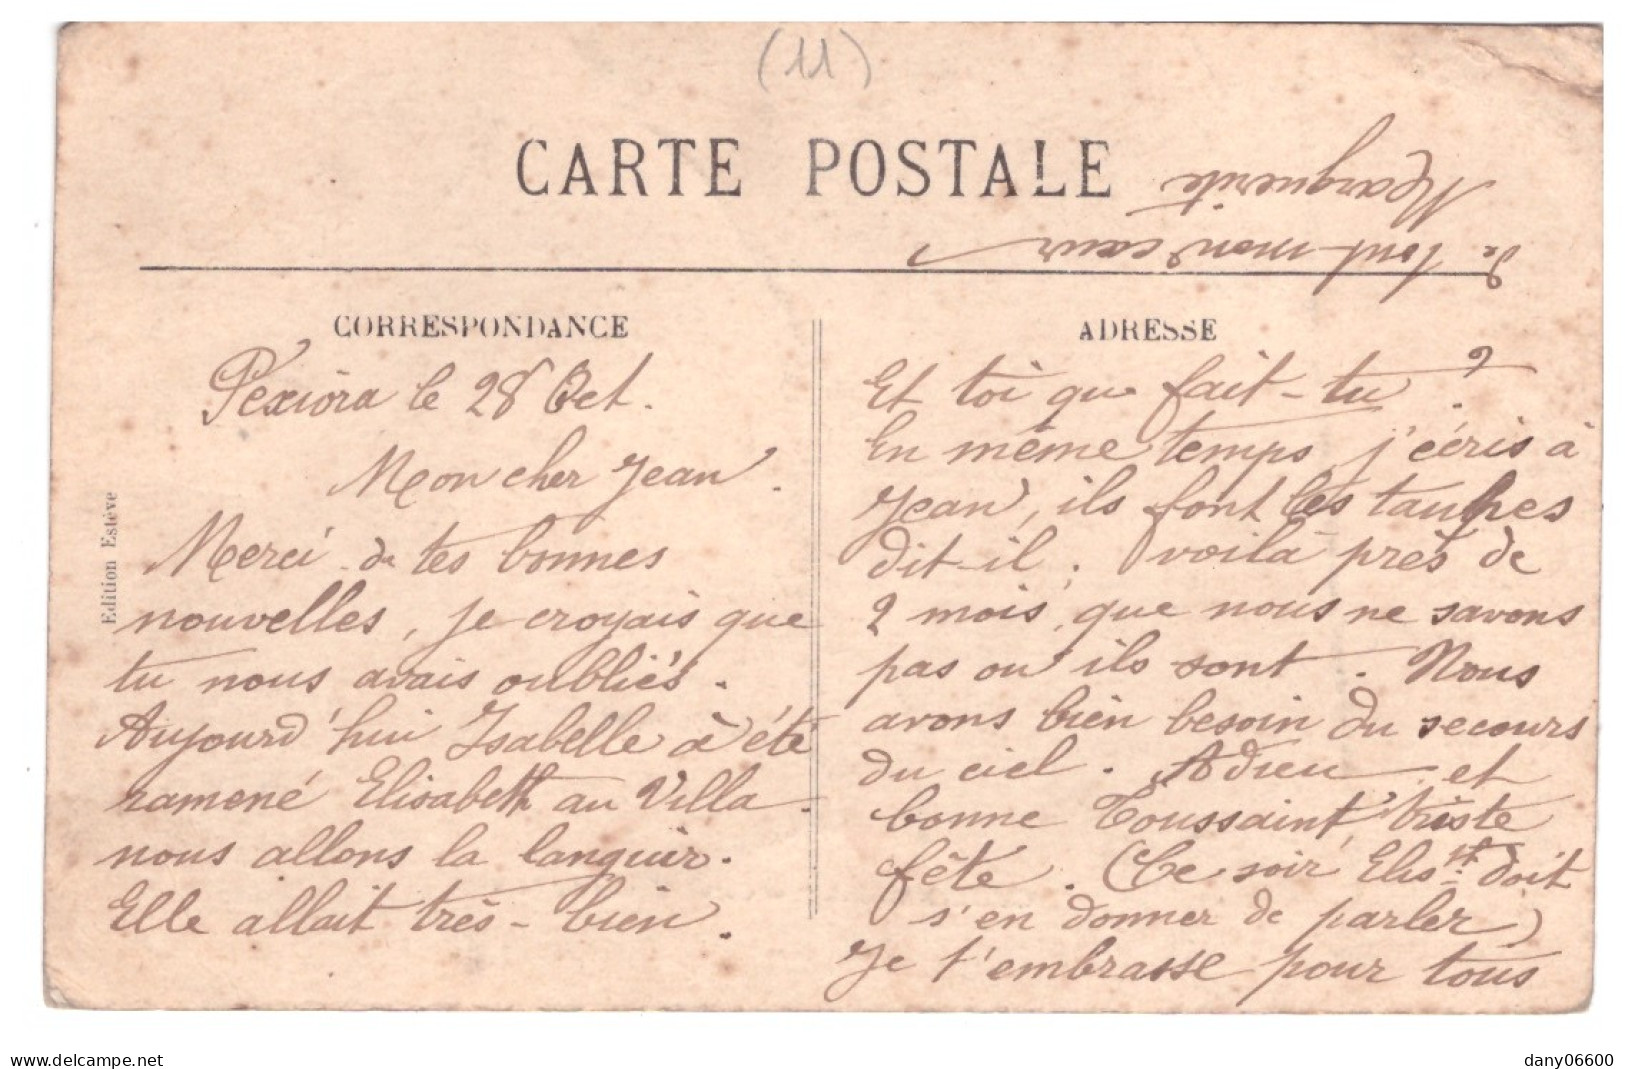 (11)
CARTE POSTALE
CORRESPONDANCE
Pexiora le 28 Oct.
Mon cher Jean.
Merci de tes bonnes
nouvelles, je croyais que
tu nous avais oubliés.
Aujourd'hui Isabelle à été
ramené Elisabeth au Villa.
nous allons la languir.
Elle allait très-bien.
Edition Estève
ADRESSE
Et toi que fait-tu ?
En même temps j'écris à
Jean, ils font les
dit-il. Voilà près de
2 mois, que nous ne savons
pas ou ils sont. Nous
avons bien besoin du secours
du ciel. Adieu et
bonne Toussaint, triste
fête. (Ce soir Elis.th doit
s'en donner de parler)
Je t'embrasse pour tous
de tout mon cœur
Marguerite
delcampe.net
dany06600